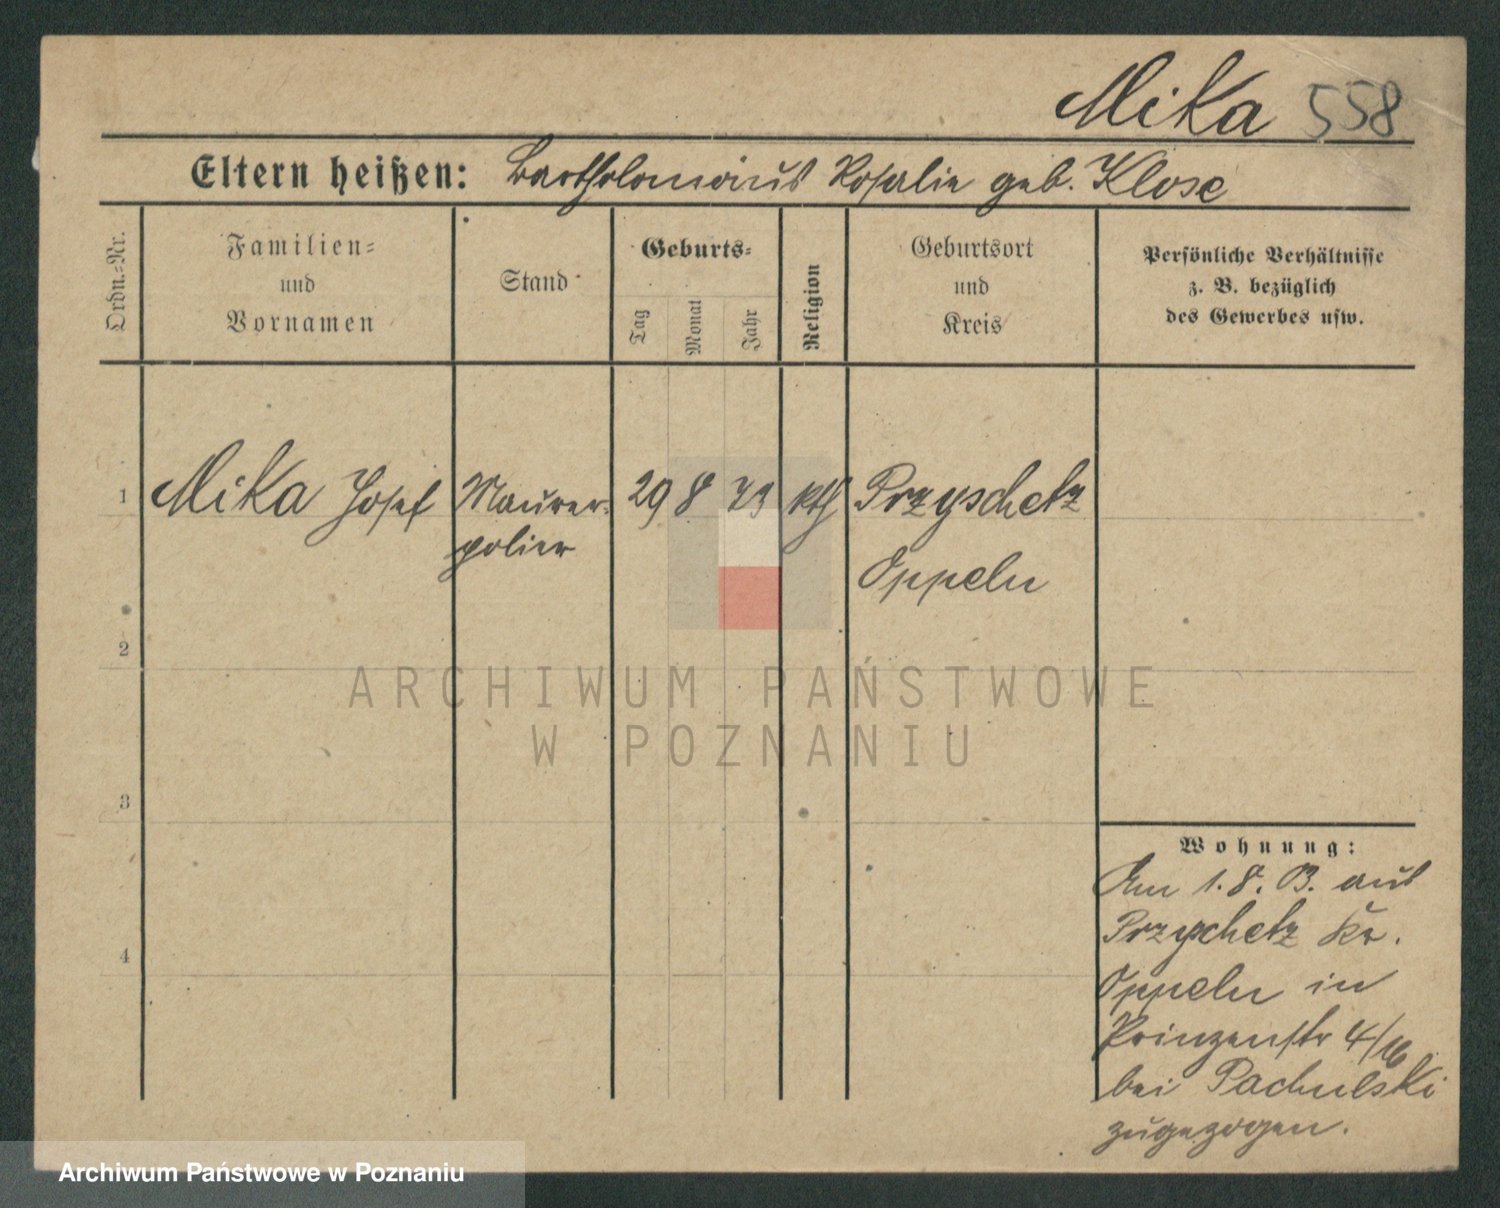 Mika 558
Eltern heißen: Bartholomäus Rosalie geb. Klose
Ordn.-Nr.
Familien-
und
Vornamen
Stand
Geburts-
Tag
Monat
Jahr
Religion
Geburtsort
und
Kreis
Persönliche Verhältnisse
z. B. bezüglich
des Gewerbes usw.
1 Mika Josef Maurer- 29 8 73 kth Przyschetz
polier Oppeln
2
3
4
ARCHIWUM PAŃSTWOWE
W POZNANIU
Wohnung:
Am 1. 8. 13. aus
Przychetz Kr.
Oppeln in
Prinzenstr 4/16
bei Pachulski
zugezogen.
Archiwum Państwowe w Poznaniu